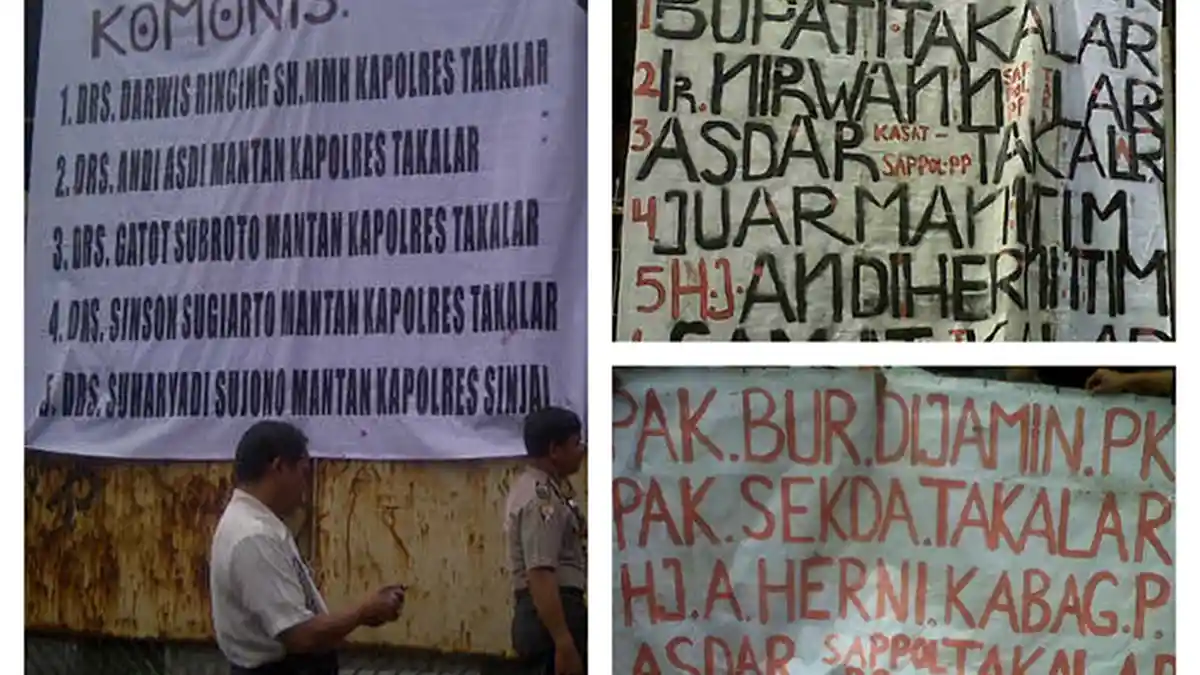 KOMONIS.
1. DRS. DARWIS RINCING SH.MMH KAPOLRES TAKALAR
2. DRS. ANDI ASDI MANTAN KAPOLRES TAKALAR
3. DRS. GATOT SUBROTO MANTAN KAPOLRES TAKALAR
4. DRS. SINSON SUGIARTO MANTAN KAPOLRES TAKALAR
5. DRS. SUHARYADI SUJONO MANTAN KAPOLRES SINJAI
1 BUPATI.TAKALAR
2 Ir. NIRWANN SAPPOL PP TAK LAR
3 ASDAR KASAT - SAPPOL-PP TAKALAR
4 JUARMAN TIM
5 HJ.ANDI HERNI TIM
PAK.BUR.DIJAMIN.PK
PAK.SEKDA.TAKALAR
HJ.A.HERNI.KABAG.P.
ASDAR SAPPOL TAKALAR